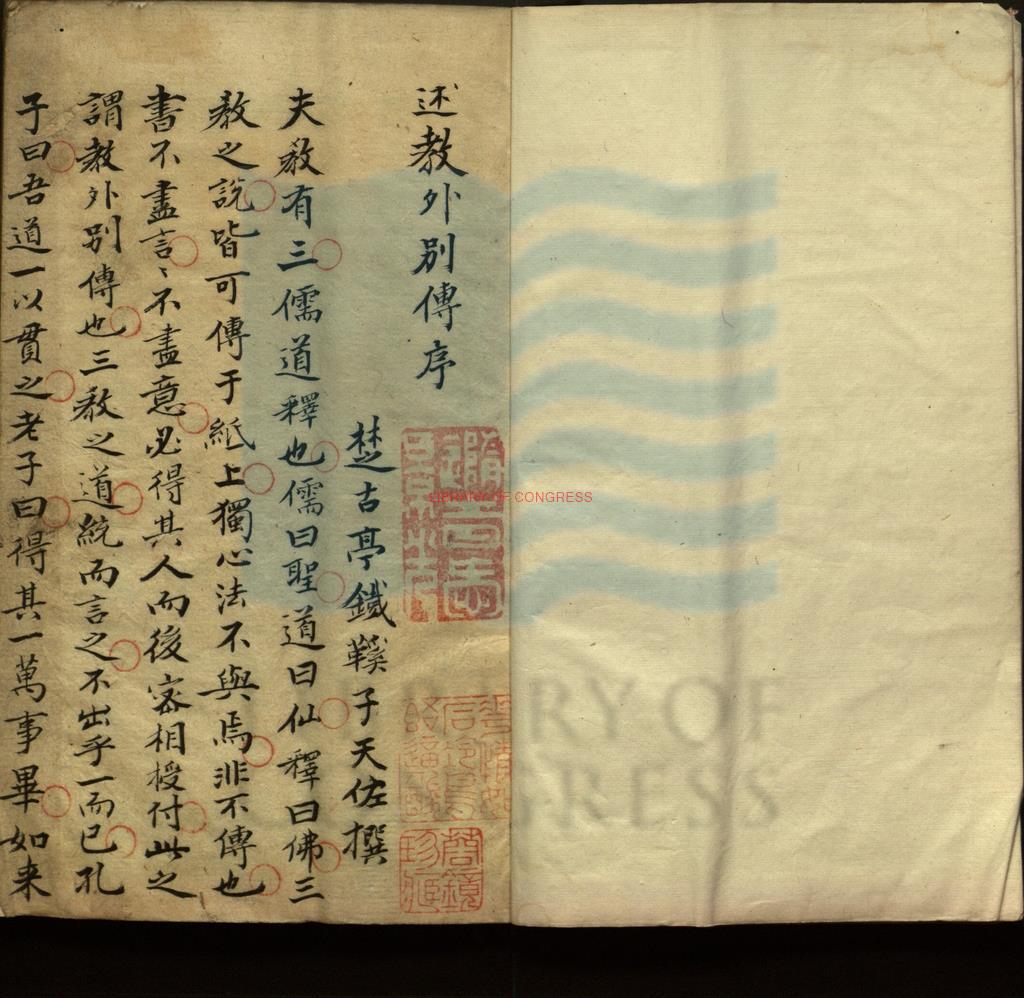 述教外別傳序
楚古亭鐵䩺子天佐撰
夫教有三儒道釋也儒曰聖道曰仙釋曰佛三
教之說皆可傳于紙上獨心法不與焉非不傳也
書不盡言〻不盡意必得其人而後密相授付此之
謂教外別傳也三教之道統而言之不出乎一而已孔
子曰吾道一以貫之老子曰得其一萬事畢如来
LIBRARY OF CONGRESS
LIBRARY OF
CONGRESS